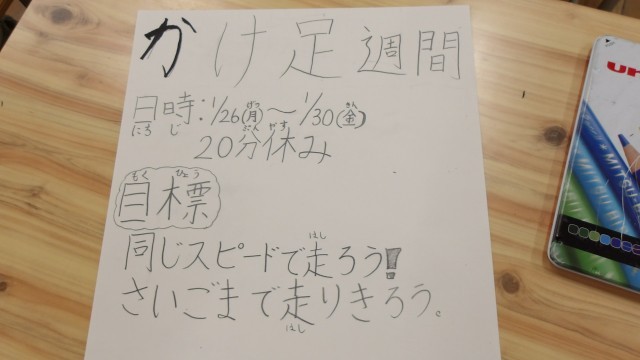 かけ足週間
日時:1/26(月)〜1/30(金)
20分休み
目標
同じスピードで走ろう!
さいごまで走りきろう。
uni
MITSU-
MITSU-B